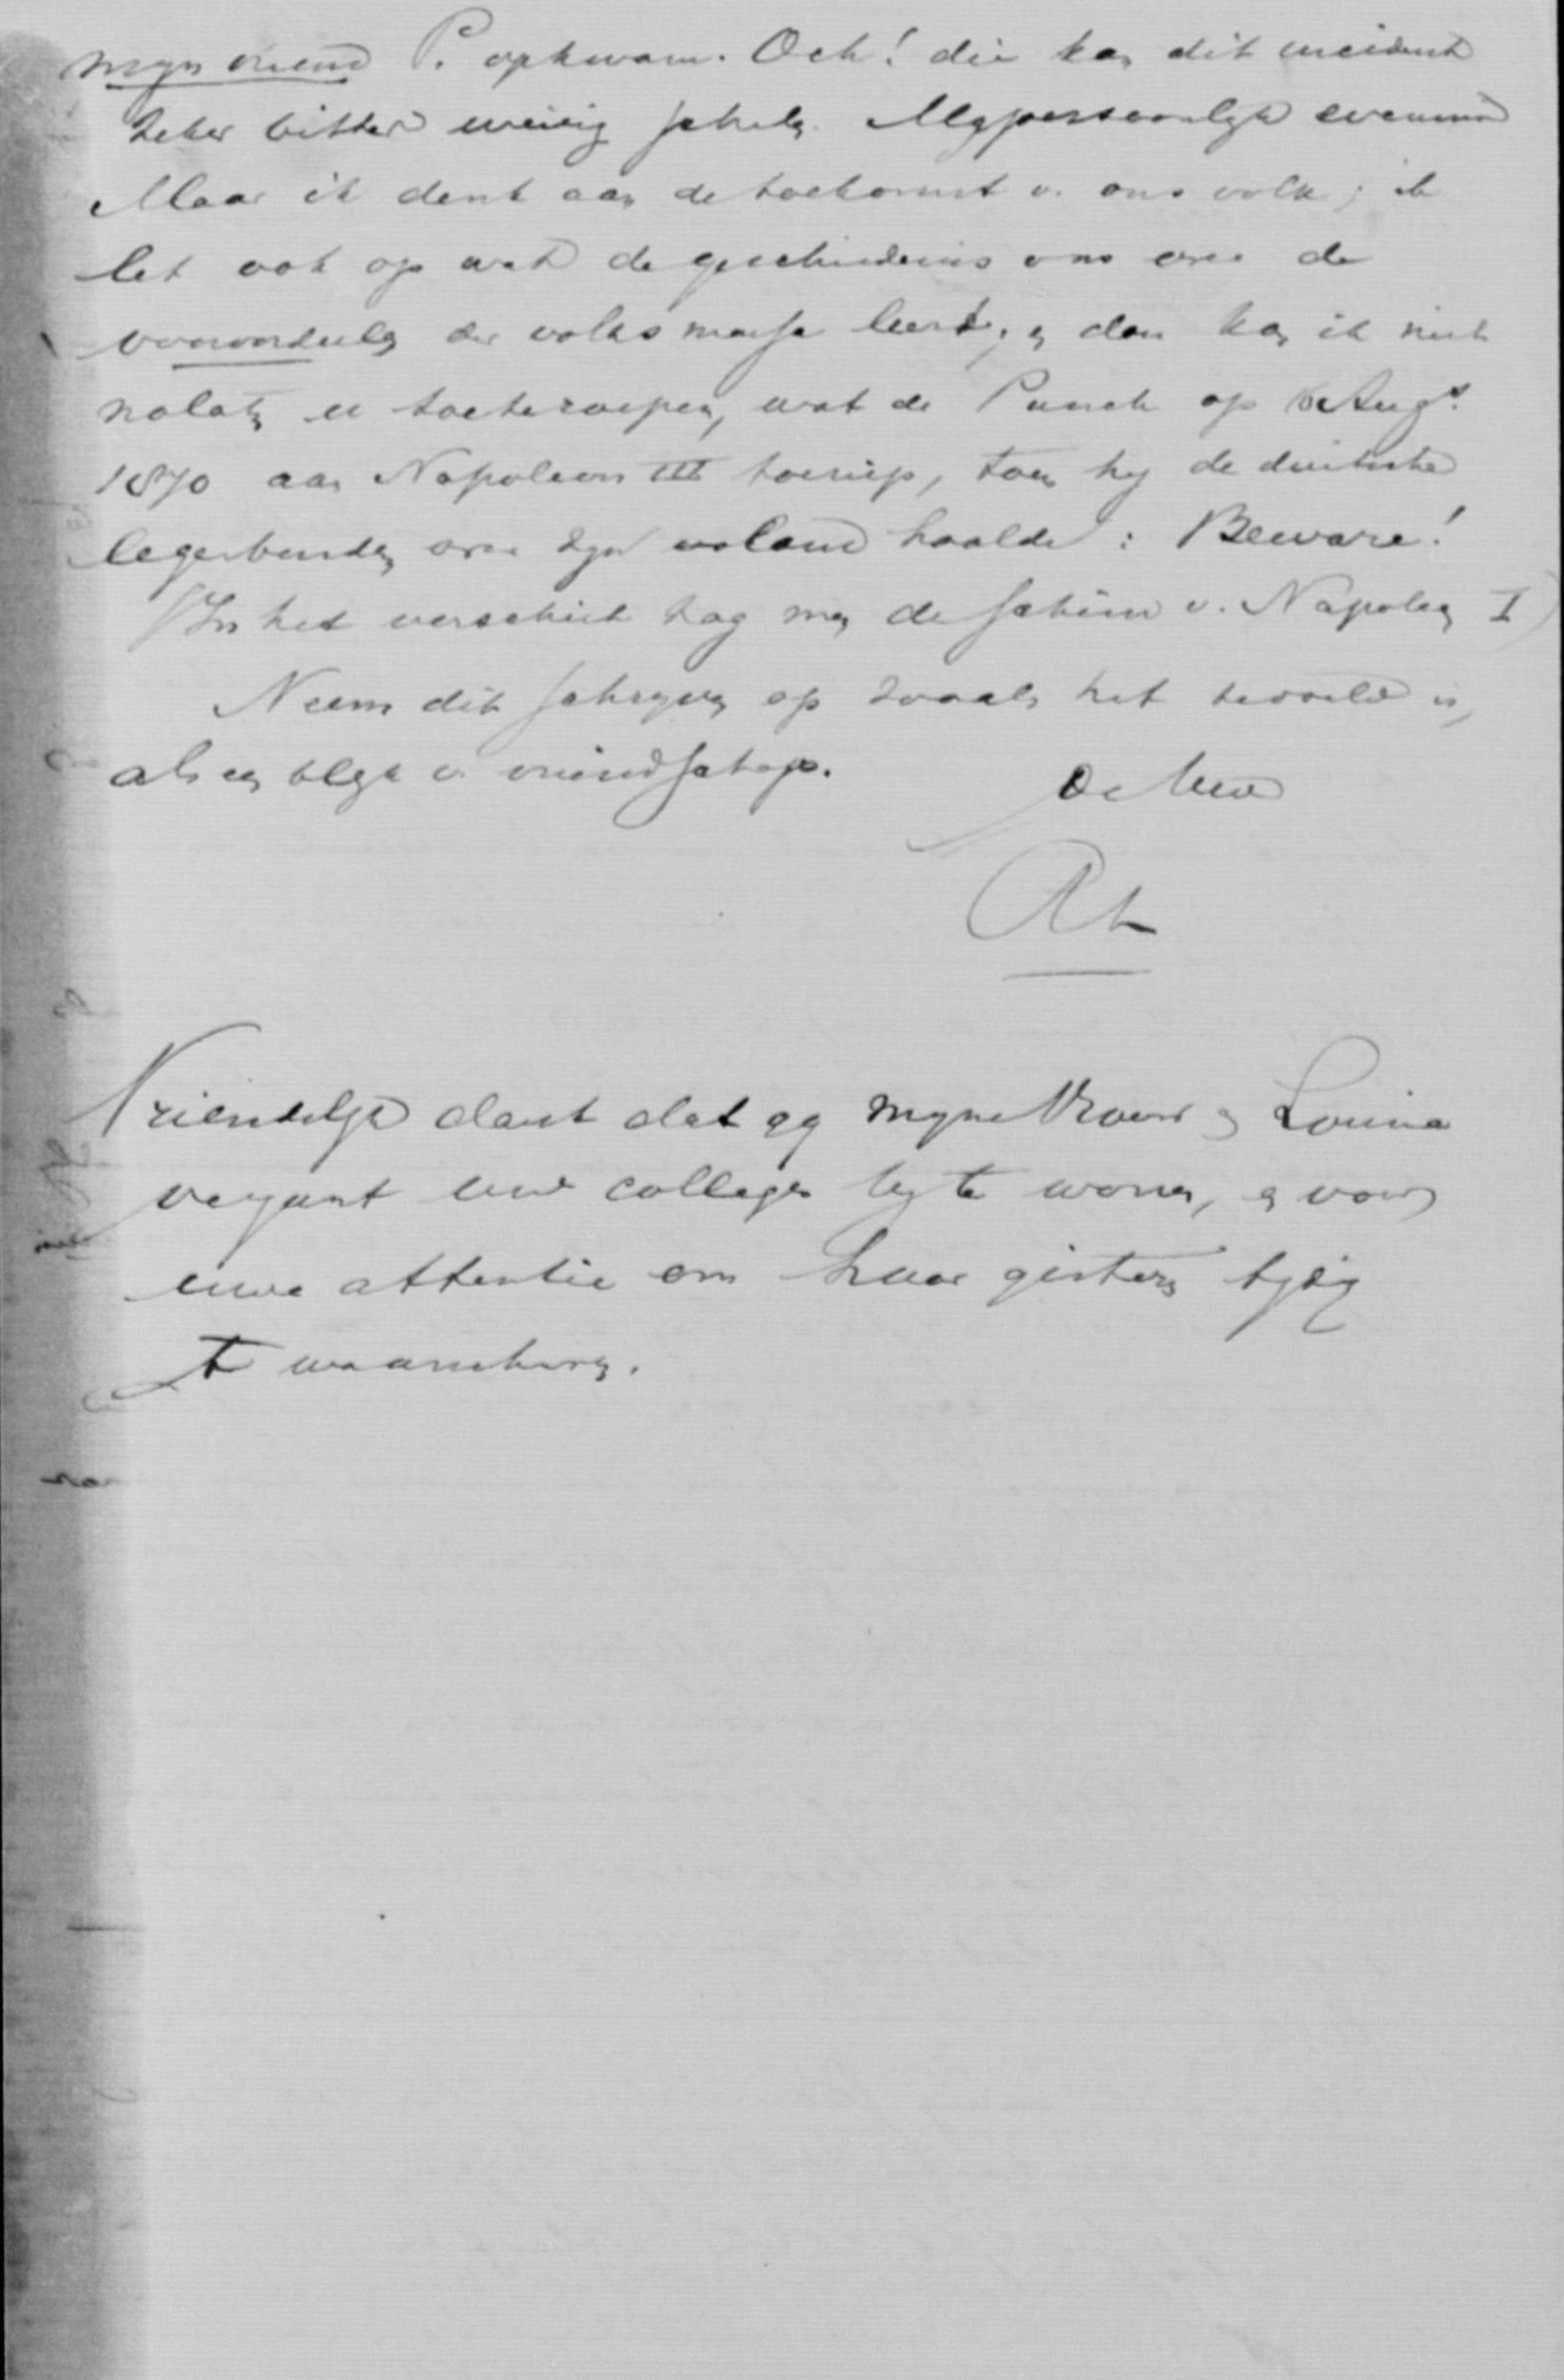 mijn vriend P. opkwam. Och! die kan dit incident
zeker bitter weinig schelen. My persoonlyk evenmin
Maar ik denk aan de toekomst v. ons volk; ik
let ook op wat de geschiedenis ons over de
vooroordeelen der volksmassa leert, en dan kan ik niet
nalaten u toeteroepen, wat de Punch op 6 Augs.
1870 aan Napoleon III toeriep, toen hy de duitsche
legerbenden over zyn land haalde: Beware!
(In het verschiet zag men de schim v. Napoleon I)
Neem dit schryven op zooals het bedoeld is,
als een blyk v. vriendschap.
de Uwe
Vriendelyk dank dat gy myne Vrouw en Louise
vergunt uwe colleges by te wonen, en voor
uwe attentie om haar gisteren tydig
te waarschuwen.